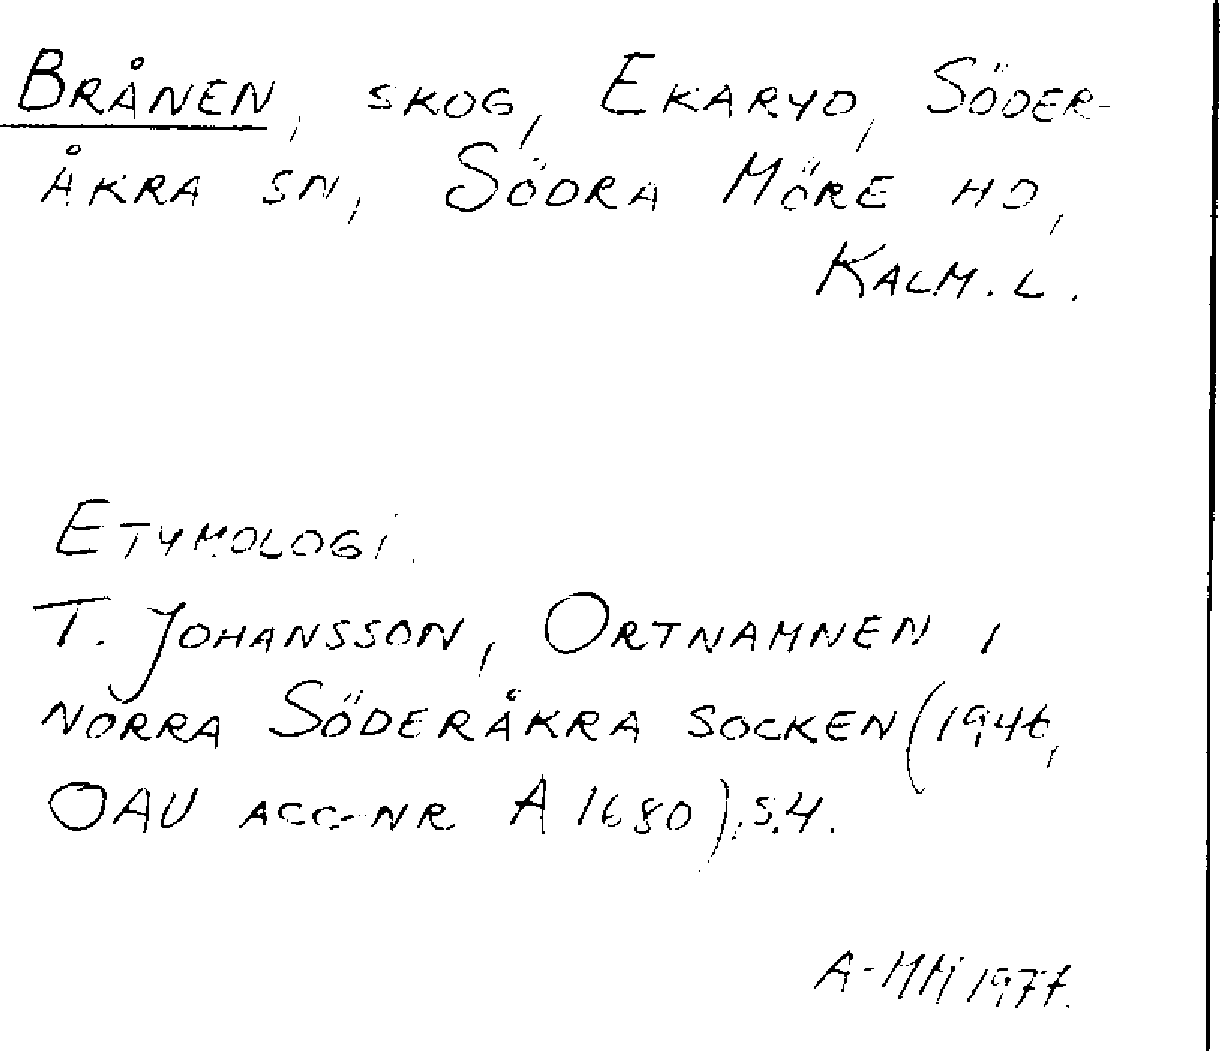 BRÅNEN, SKOG, EKARYD, SÖDER-
ÅKRA SN, SÖDRA MÖRE HD,
KALM. L.
ETYMOLOGI.
T. JOHANSSON, ORTNAMNEN I
NORRA SÖDERÅKRA SOCKEN (1946,
OAU ACC-NR A 1680), S.4.
A-MM 1977.